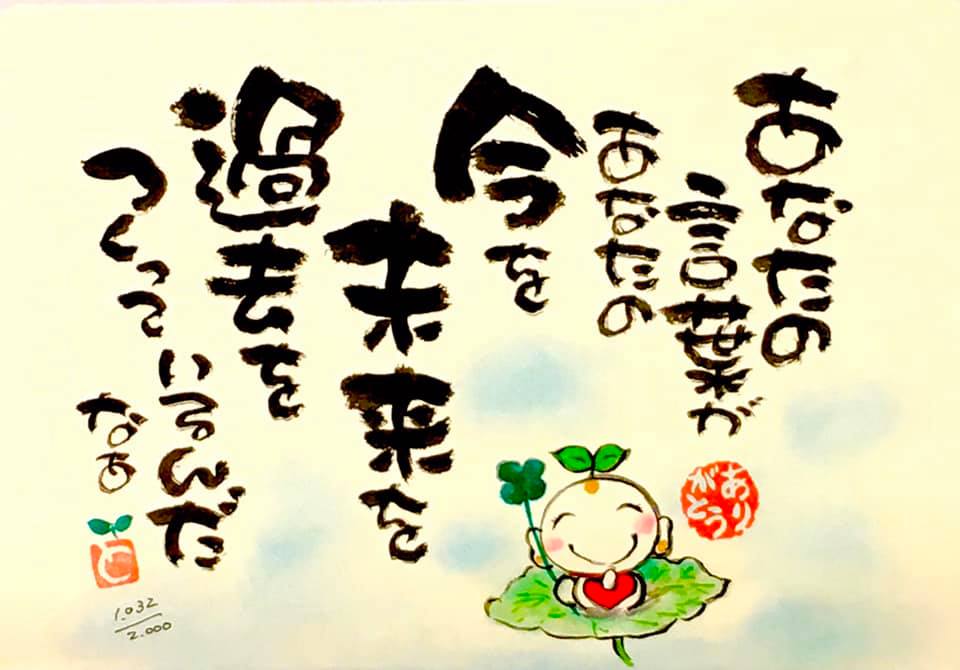 あなたの
言葉が
あなたの
今を
未来を
過去を
つくって
いるんだ
なあ
ありがとう
と
1.032
2.000